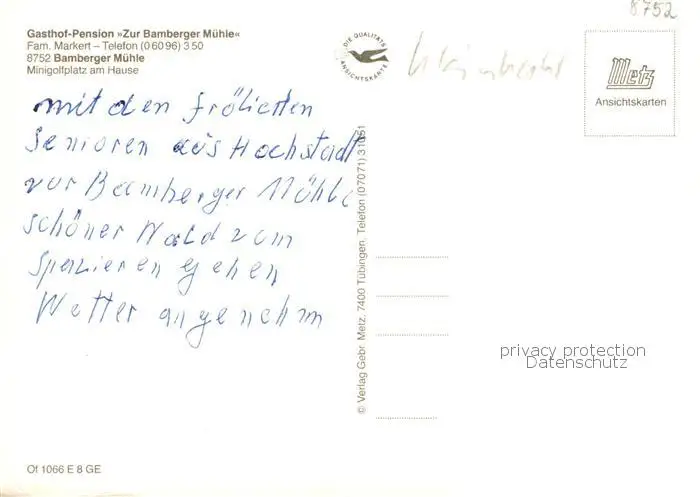 8752
Gasthof-Pension »Zur Bamberger Mühle«
Fam. Markert – Telefon (0 60 96) 3 50
8752 Bamberger Mühle
Minigolfplatz am Hause
DIE QUALITÄTS ANSICHTSKARTE
Metz
Ansichtskarten
mit den frölichen
Senioren aus Hochstadt
zur Bamberger Mühle
schöner Wald zum
spazieren gehen
Wetter angenehm
© Verlag Gebr. Metz, 7400 Tübingen, Telefon (07071) 31051
privacy protection
Datenschutz
Of 1066 E 8 GE